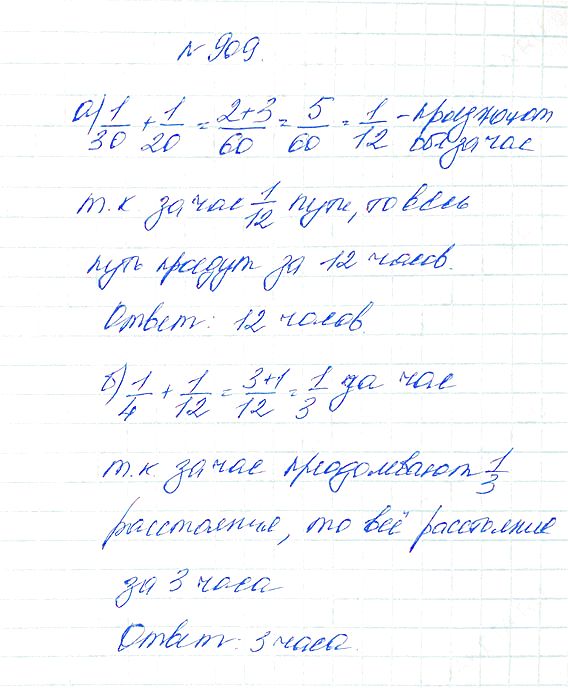 № 909.
а) 1/30 + 1/20 = 2+3/60 = 5/60 = 1/12 –
за час
т.к за час 1/12 пути, то весь
путь пройдут за 12 часов.
Ответ: 12 часов.
б) 1/4 + 1/12 = 3+1/12 = 1/3 за час
т.к за час преодолевают 1/3
расстояния, то всё расстояние
за 3 часа
Ответ: 3 часа.